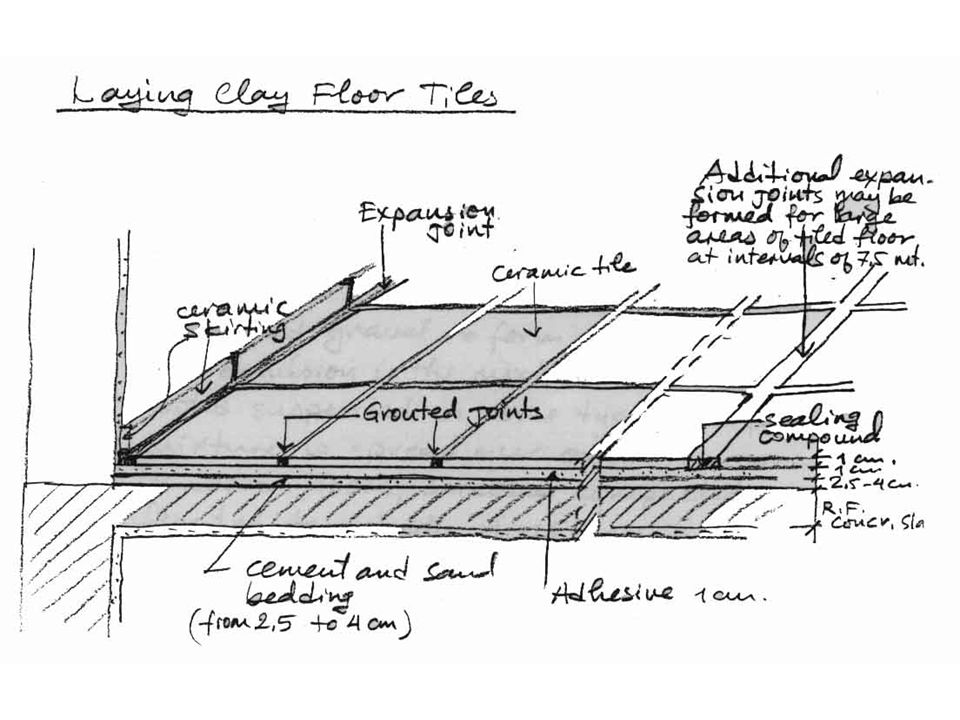 Laying Clay Floor Tiles
Additional expan-
sion joints may be
formed for large
areas of tiled floor
at intervals of 7,5 mt.
Expansion
joint
ceramic tile
ceramic
skirting
Grouted joints
sealing
compound
1 cm.
1 cm
2,5-4 cm.
R.F.
concr. sla
cement and sand
bedding
(from 2,5 to 4 cm)
Adhesive 1 cm.